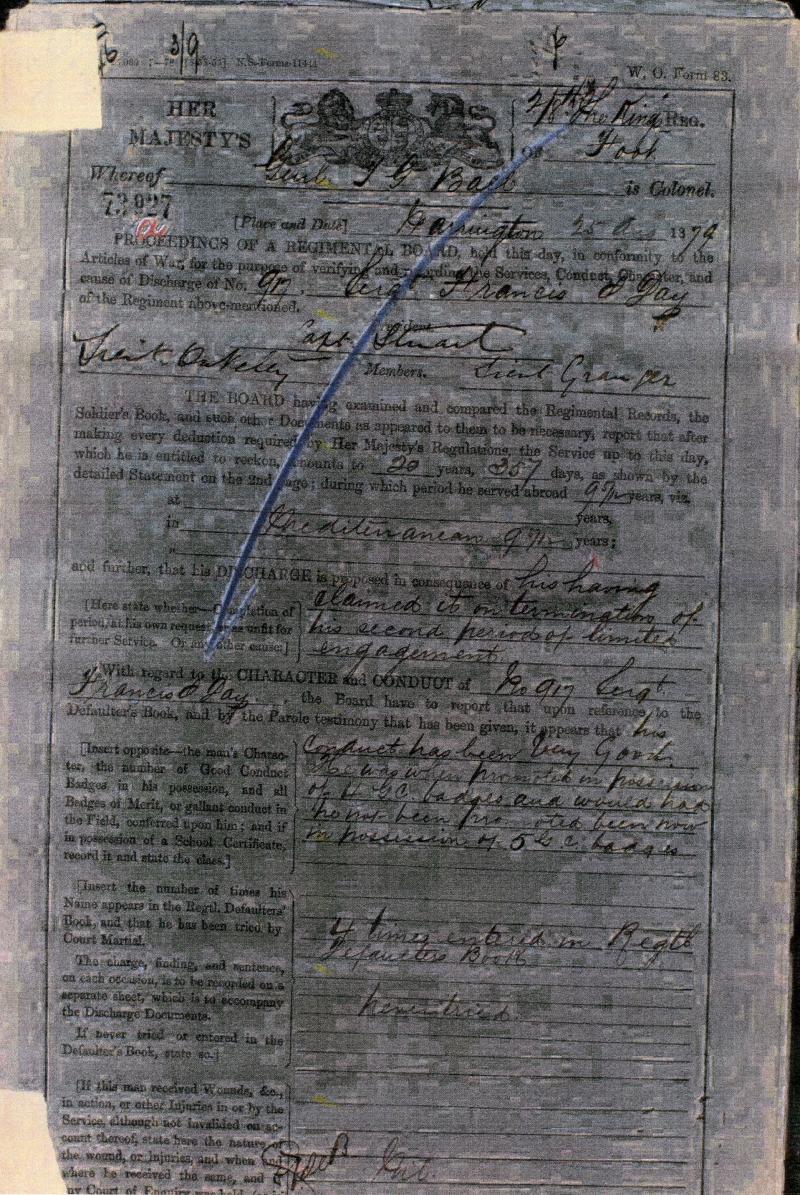 3/9
N.S. Forms
W. O. Form 83.
HER
MAJESTY'S
2/8th The King's REG.
OF Foot
Whereof Genl. is Colonel.
73927
[Place and Date] Warrington 25 Aug 1879
PROCEEDINGS OF A REGIMENTAL BOARD, held this day, in conformity to the
Articles of War, for the purpose of verifying and recording the Services, Conduct, Character, and
cause of Discharge of No. 917 Sergt Francis Day
of the Regiment above-mentioned.
Capt Stuart
Lieut Oakeley Members. Lieut Granger
THE BOARD having examined and compared the Regimental Records, the
Soldier's Book, and such other Documents as appeared to them to be necessary, report that after
making every deduction required by Her Majesty's Regulations, the Service up to this day,
which he is entitled to reckon, amounts to 20 years, 357 days, as shown by the
detailed Statement on the 2nd page; during which period he served abroad years, viz.
at years,
in Mediterranean years;
"
and further, that his DISCHARGE is proposed in consequence of his having
[Here state whether—Completion of
period, at his own request, or as unfit for
further Service. Or any other cause.]
claimed it on termination of
his second period of limited
engagement.
With regard to the CHARACTER and CONDUCT of No 917 Sergt
Francis Day, the Board have to report that upon reference to the
Defaulter's Book, and by the Parole testimony that has been given, it appears that his
[Insert opposite—the man's Charac-
ter, the number of Good Conduct
Badges in his possession, and all
Badges of Merit, or gallant conduct in
the Field, conferred upon him; and if
in possession of a School Certificate,
record it and state the class.]
Conduct has been Very Good.
He was when promoted in possession
of 4 G.C. badges and would had
he not been promoted been now
in possession of 5 G.C. badges
[Insert the number of times his
Name appears in the Regtl. Defaulters'
Book, and that he has been tried by
Court Martial.
The charge, finding, and sentence,
on each occasion, is to be recorded on a
separate sheet, which is to accompany
the Discharge Documents.
If never tried or entered in the
Defaulter's Book, state so.]
4 times entered in Regtl
Defaulters Book
Never tried.
[If this man received Wounds, &c.,
in action, or other Injuries in or by the
Service, although not invalided on ac-
count thereof, state here the nature of
the wound, or injuries, and when and
where he received the same, and if
any Court of Enquiry